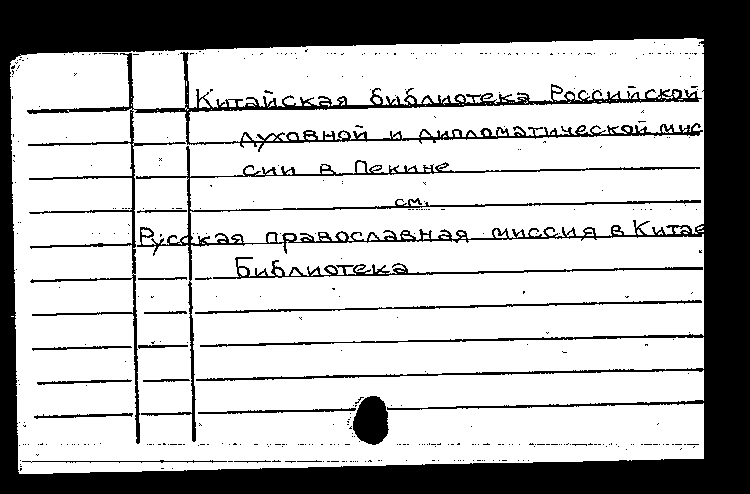 Китайская библиотека Российской
духовной и дипломатической мис
сии в Пекине
см.
Русская православная миссия в Китае
Библиотека